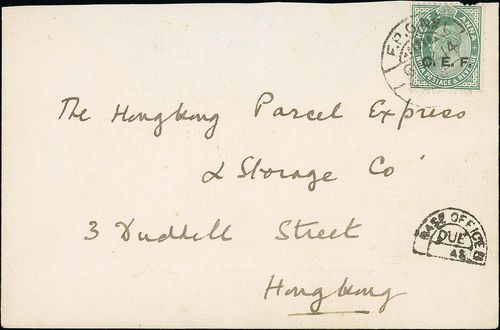 F.P.O. No
ANNA
C. E. F.
INDIA POSTAGE & REVENUE
The Hongkong Parcel Express
& Storage Co
3 Duddell Street
Hongkong
BASE OFFICE B
DUE
AS